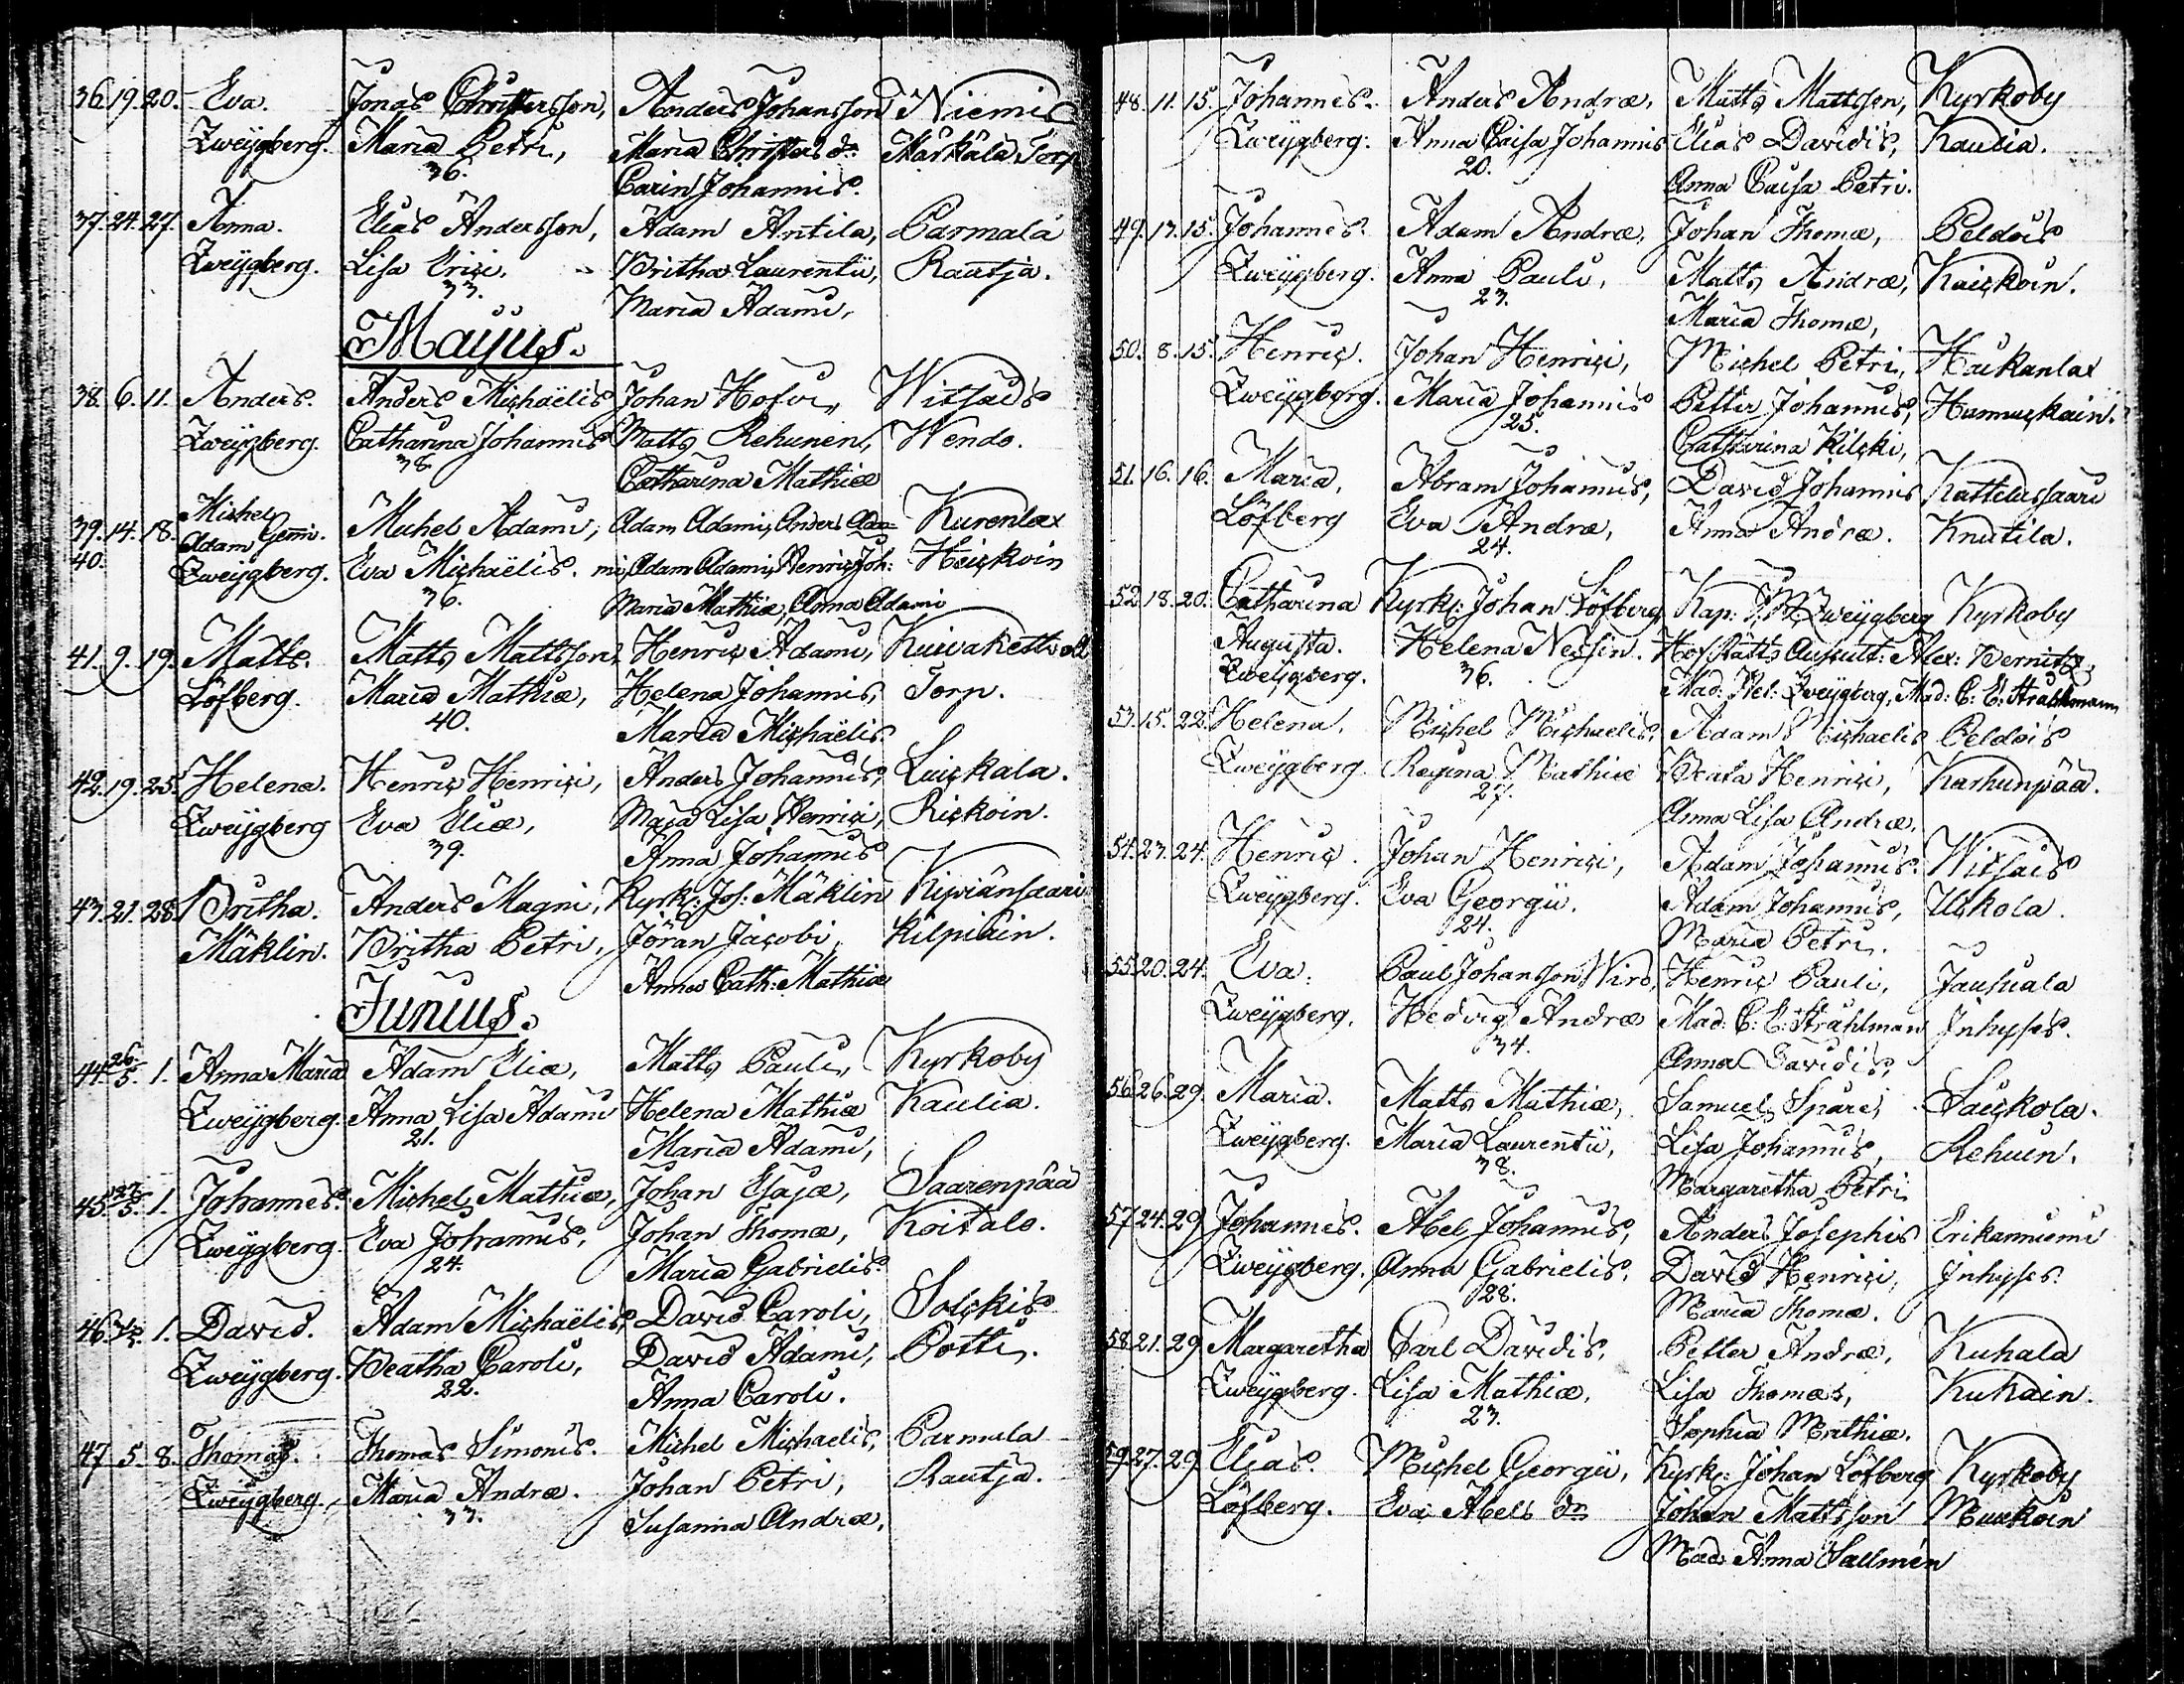 36. 19. 20. Eva. Jonas Christersson, Anders Johansson Niemis
Zweygberg. Maria Petri, Maria Christers dr Markala Torp
36. Carin Johannis.
37. 24. 27. Anna. Elias Andersson, Adam Antila, Parmala
Zweygberg. Lisa Erici, Britha Laurentii, Rautja.
33. Maria Adami,
Majus.
38. 6. 11. Anders. Anders Michaëlis Johan Hofvi, Witsais
Zweygberg. Catharina Johannis Matts Rehunen, Wendo.
38. Catharina Mathiæ
Michel
39. 14. 18. Adam Gem. Michel Adami, Adam Adami, Anders Ada= Kurenlax
40. Zweygberg. Eva Michaëlis. mi, Adam Adami, Henric Joh: Heickoin
36. Maria Mathiæ, Anna Adami
41. 9. 19. Matts. Matts Mattsson, Henric Adami, Kuivaketts
Löfberg. Maria Mathiæ, Helena Johannis, Torp.
40. Maria Michaëlis
42. 19. 25. Helena. Henric Henrici, Anders Johannis, Luickala.
Zweygberg Eva Eliæ, Maja Lisa Henrici, Rickoin.
39. Anna Johannis
43. 21. 28. Britha. Anders Magni, Kyrk: Joh: Mäklin Kiperänsaari
Mäklin. Britha Petri, Jöran Jacobi, Kilpiäin.
Anna Cath: Mathiæ
Junius.
44. 26/5. 1. Anna Maria Adam Eliæ, Matts Pauli, Kyrkoby
Zweygberg. Anna Lisa Adami Helena Mathiæ Kaulia.
21. Maria Adami,
45. 27/5. 1. Johannes. Michel Mathiæ, Johan Esajæ, Saarenpää
Zweygberg. Eva Johannis, Johan Thomæ, Koitalo.
24. Maria Gabrielis.
46. 1. David. Adam Michaëlis, David Caroli, Solckis
Zweygberg. Beatha Caroli, David Adami, Potti.
22. Anna Caroli.
47. 5. 8. Thomas. Thomas Simonis. Michel Michaelis, Parmala
Zweygberg. Maria Andræ. Johan Petri, Rautja.
33. Susanna Andræ,
48. 11. 15. Johannes. Anders Andræ, Matts Mattsson, Kyrkoby
Zweygberg. Anna Caisa Johannis Elias Davidis, Kaulia.
20. Anna Caisa Petri.
49. 13. 15. Johannes. Adam Andræ, Johan Thomæ, Peldois
Zweygberg. Anna Pauli, Matts Andræ, Kaickoin.
23. Maria Thomæ,
50. 8. 15. Henric. Johan Henrici, Michel Petri, Haukanlax
Zweygberg. Maria Johannis Petter Johannis, Hannuckain.
25. Catharina Kilcki,
51. 16. 16. Maria, Abram Johannis, David Johannis Kattelussaari
Löfberg Eva Andræ, Anna Andræ. Knutila.
24.
52. 18. 20. Catharina Kyrk: Johan Löfberg, Kap: Zweygberg Kyrkoby
Augusta. Helena Nessin. HofRätts Auscult: Alex: Wernitz,
Zweygberg. 36. Mad: Hel: Zweygberg, Mad: C: E: Strahlmann
53. 15. 22. Helena. Michel Michaelis, Adam Michaelis Peldois
Zweygberg Regina Mathiæ Beata Henrici, Karhunpää.
27. Anna Lisa Andræ,
54. 23. 24. Henric. Johan Henrici, Adam Johannis. Witsais
Zweygberg. Eva Georgii. Adam Johannis, Uskola.
24. Maria Petri.
55. 20. 24. Eva. Paul Johansson Wiro, Henric Pauli, Jauhiala
Zweygberg. Hedvig Andræ Mad: C: E: Strahlman Inhyses.
34. Anna Davidis,
56. 26. 29. Maria. Matts Mathiæ, Samuel Spare, Säckola.
Zweygberg. Maria Laurentii, Lisa Johannis, Rehuin.
38. Margaretha Petri
57. 24. 29. Johannes. Abel Johannis, Anders Josephis Erikanniemi
Zweygberg. Anna Gabrielis, David Henrici, Inhyses.
28. Maria Thomæ.
58. 21. 29. Margaretha Carl Davidis, Petter Andræ, Kuhala
Zweygberg. Lisa Mathiæ, Lisa Thomæ, Kukain.
23. Sophia Mathiæ.
59. 27. 29. Elias. Michel Georgii, Kyrk: Johan Löfberg Kyrkoby
Löfberg. Eva Abels dr Johan Mattsson Muukoin
Mad: Anna Sallmén